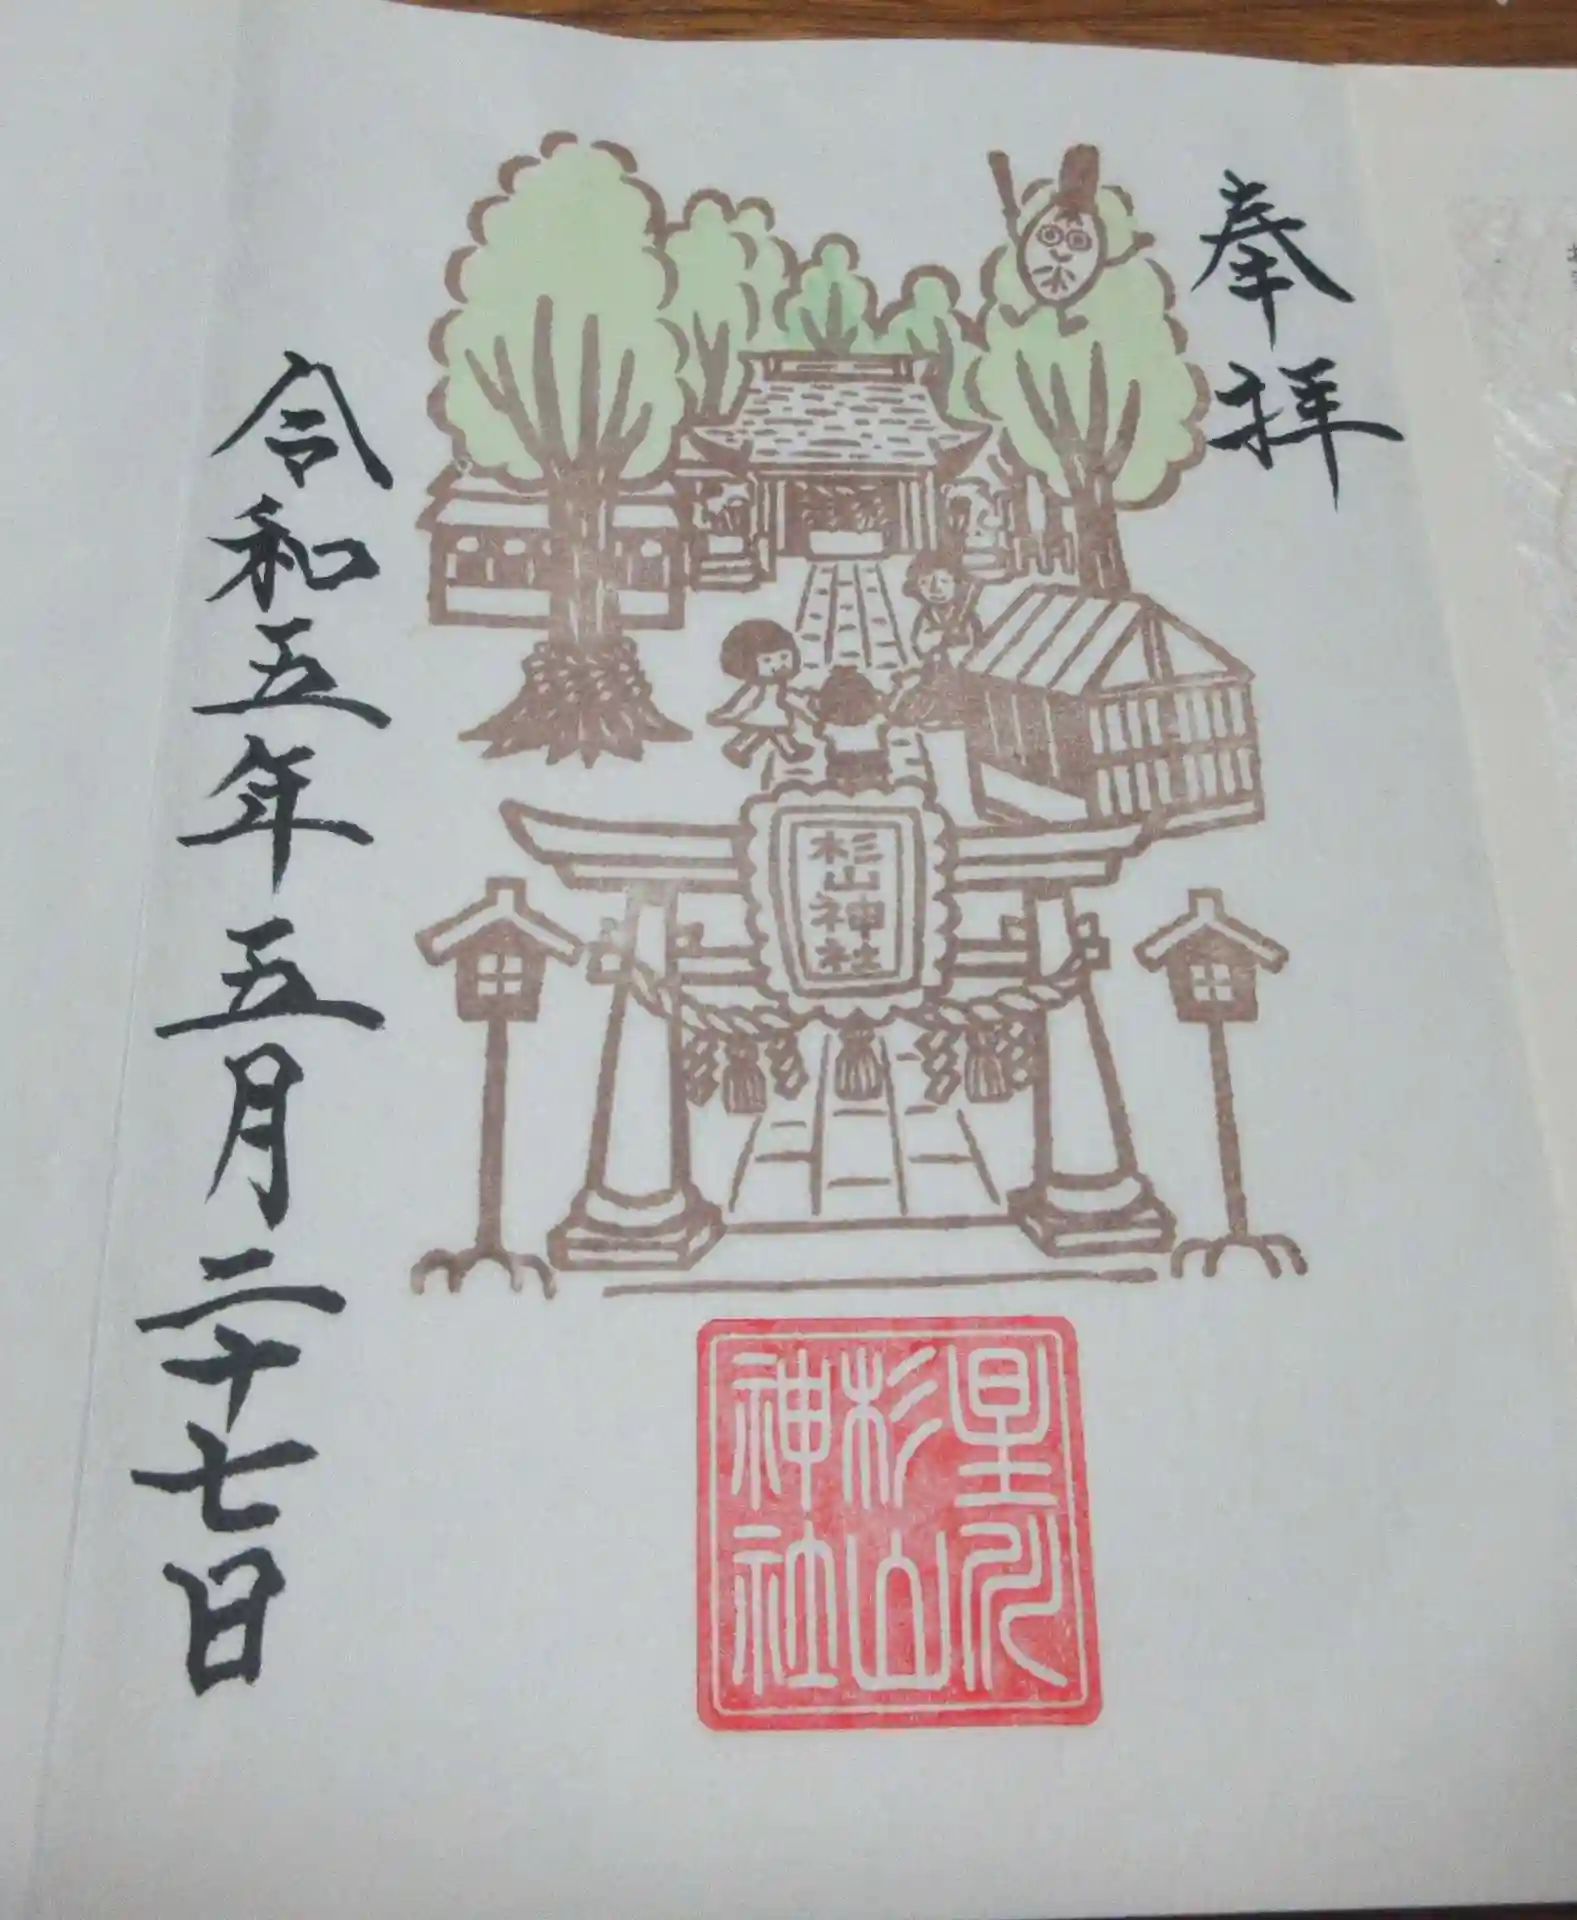 奉拝
杉山神社
星川
杉山
神社
令和五年五月二十七日